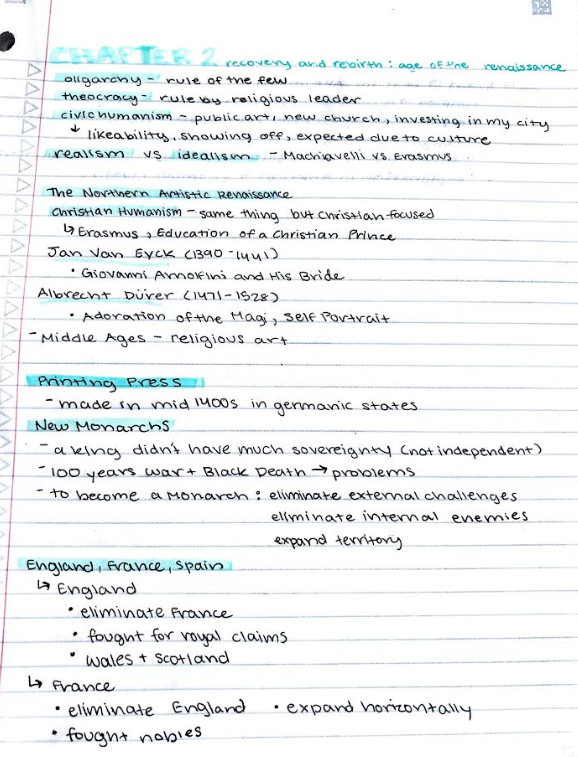 CHAPTER 2 recovery and rebirth: age of the renaissance
oligarchy - rule of the few
theocracy - rule by religious leader
civic humanism - public art, new church, investing in my city
↓ likeability, showing off, expected due to culture
realism vs idealism - Machiavelli vs Erasmus
The Northern Artistic Renaissance
Christian Humanism - same thing but Christian focused
↳ Erasmus, Education of a Christian Prince
Jan Van Eyck (1390-1441)
• Giovanni Arnolfini and His Bride
Albrecht Dürer (1471-1528)
• Adoration of the Magi, Self Portrait
- Middle Ages - religious art
Printing Press
- made in mid 1400s in germanic states
New Monarchs
- a king didn't have much sovereignty (not independent)
- 100 years war + Black Death → problems
- to become a Monarch: eliminate external challenges
eliminate internal enemies
expand territory
England, France, Spain
↳ England
• eliminate France
• fought for royal claims
• wales + scotland
↳ France
• eliminate England • expand horizontally
• fought nobles